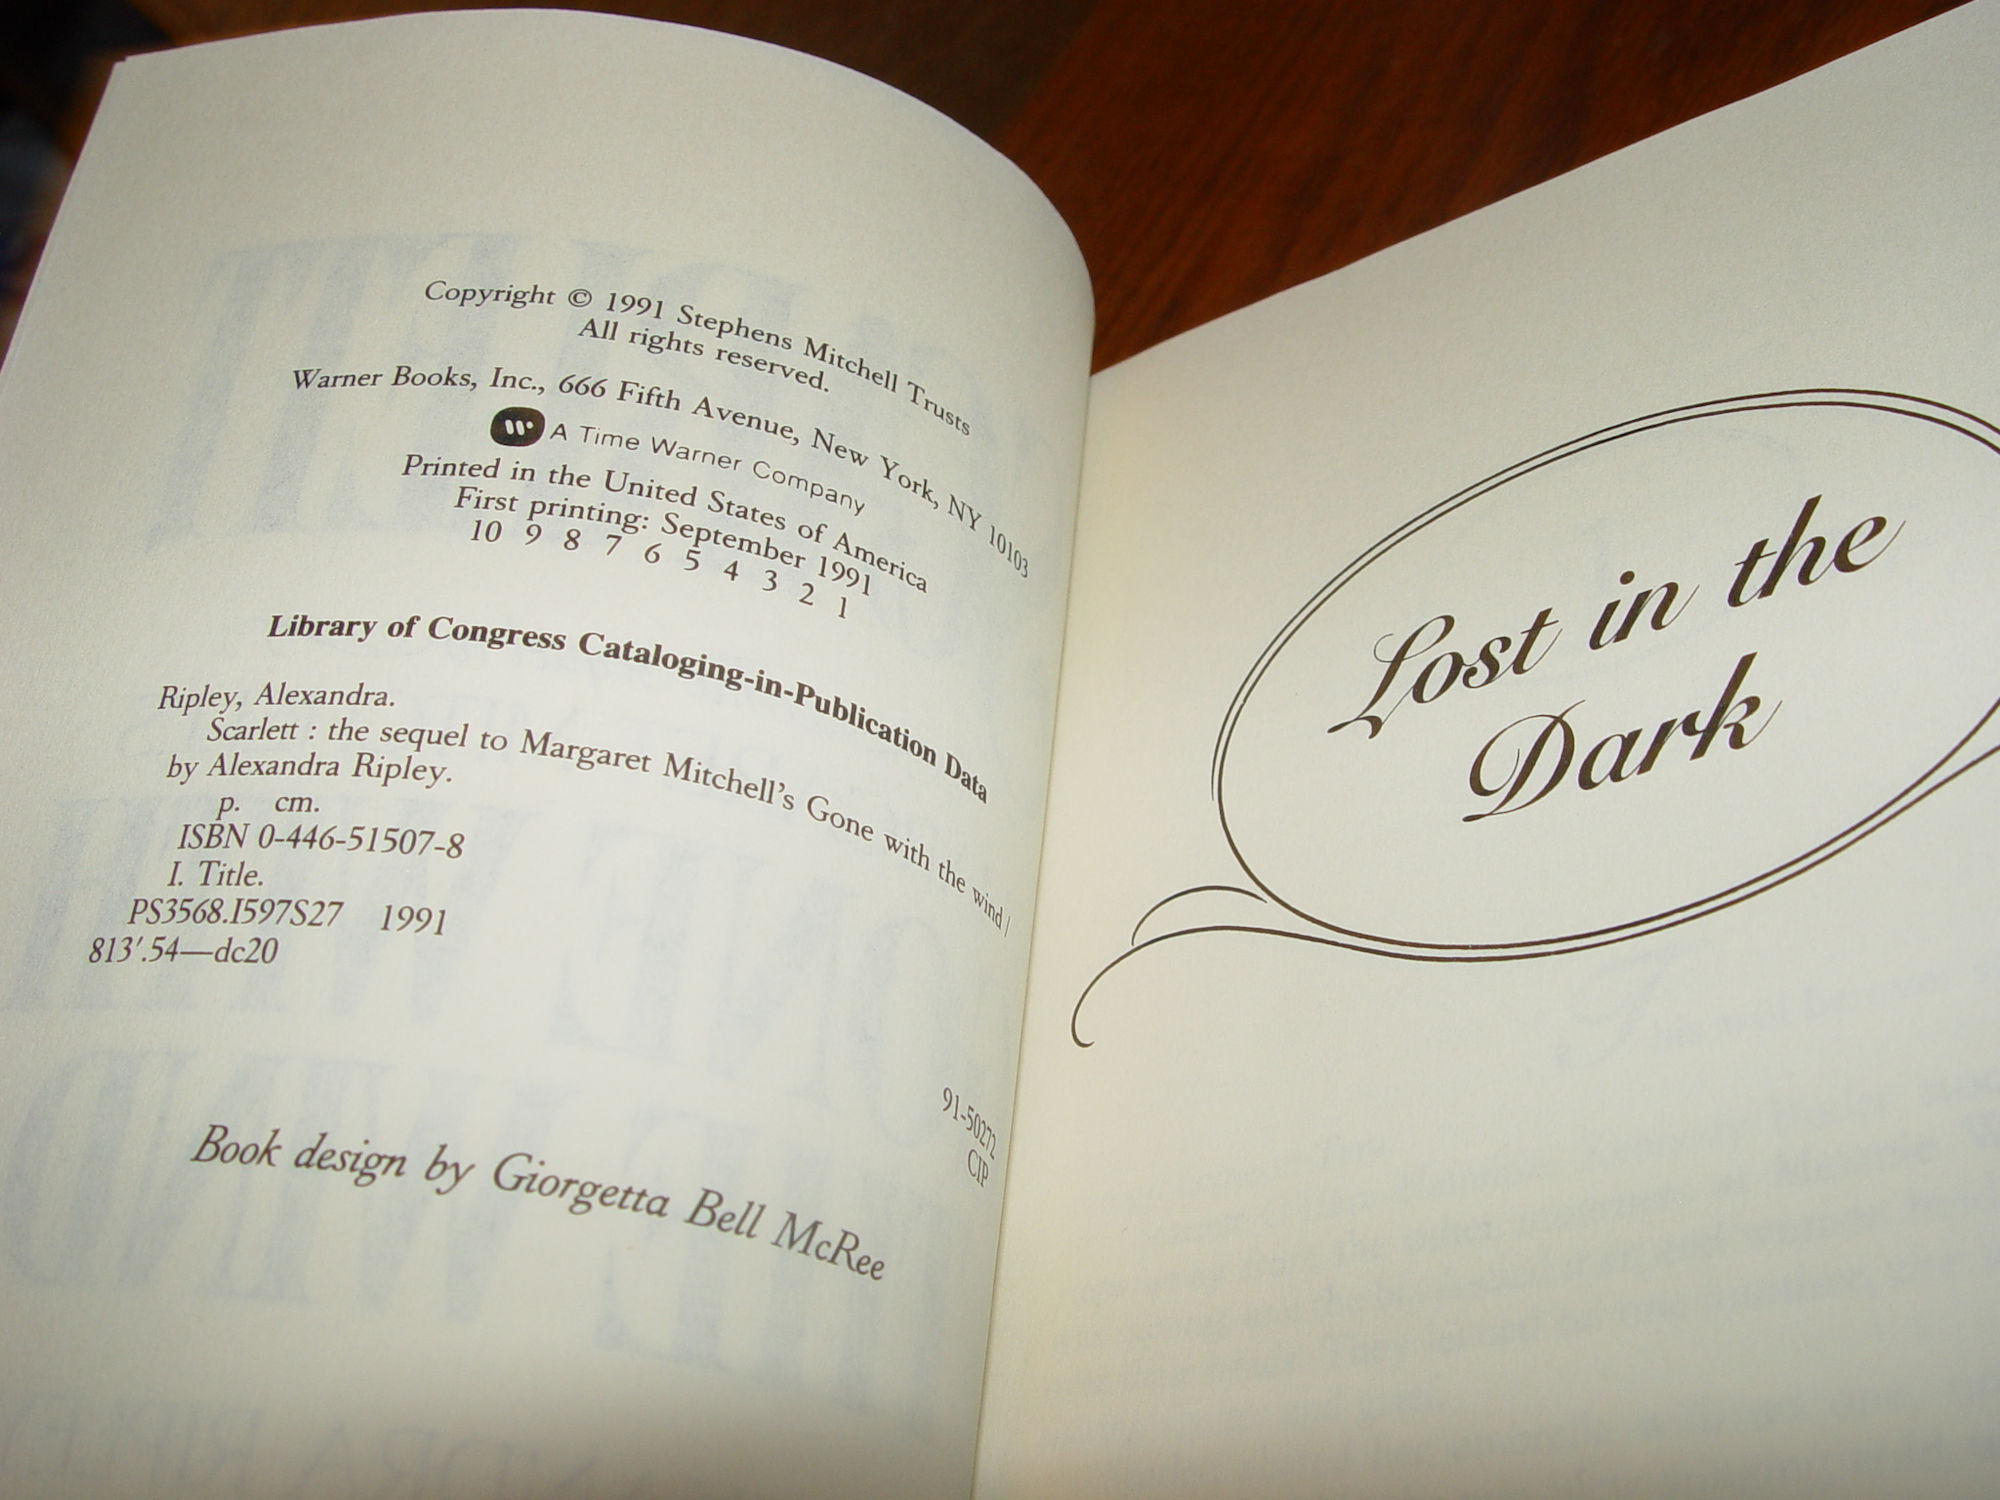 Copyright © 1991 Stephens Mitchell Trusts
All rights reserved.
Warner Books, Inc., 666 Fifth Avenue, New York, NY 10103
A Time Warner Company
Printed in the United States of America
First printing: September 1991
10 9 8 7 6 5 4 3 2 1
Library of Congress Cataloging-in-Publication Data
Ripley, Alexandra.
Scarlett : the sequel to Margaret Mitchell's Gone with the wind /
by Alexandra Ripley.
p. cm.
ISBN 0-446-51507-8
I. Title.
PS3568.I597S27 1991
813'.54—dc20
91-50272
CIP
Book design by Giorgetta Bell McRee
Lost in the
Dark